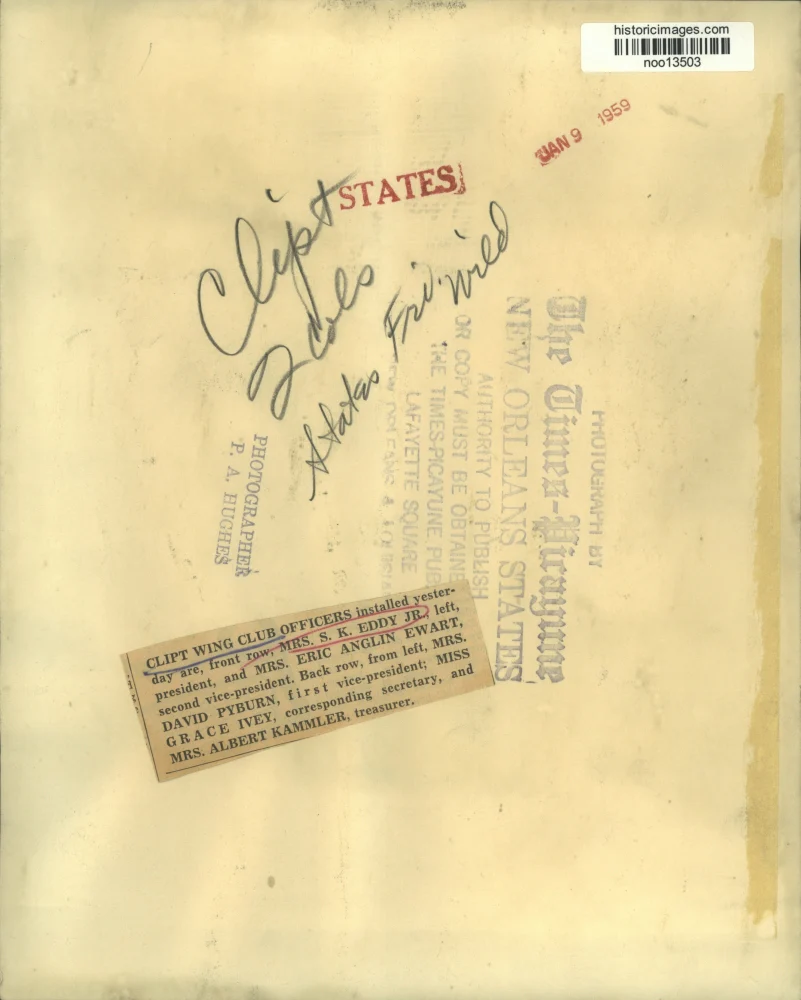 historicimages.com
noo13503
JAN 9 1959
STATES
Clipt
2 cols
States Fri. Wild
PHOTOGRAPH BY
The Times-Picayune
NEW ORLEANS STATES
AUTHORITY TO PUBLISH
OR COPY MUST BE OBTAINE
THE TIMES-PICAYUNE PUB
LAFAYETTE SQUARE
PHOTOGRAPHER
P. A. HUGHES
CLIPT WING CLUB OFFICERS installed yester-
day are, front row, MRS. S. K. EDDY JR., left,
president, and MRS. ERIC ANGLIN EWART,
second vice-president. Back row, from left, MRS.
DAVID PYBURN, first vice-president; MISS
GRACE IVEY, corresponding secretary, and
MRS. ALBERT KAMMLER, treasurer.